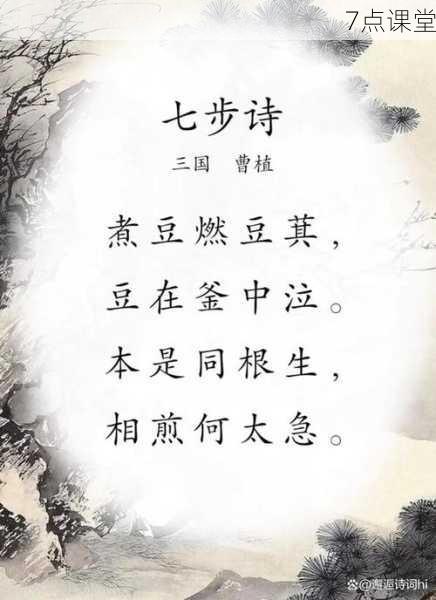 7点课堂
七步诗
三国 曹植
煮豆燃豆萁，
豆在釜中泣。
本是同根生，
相煎何太急。
@邂逅诗词hi